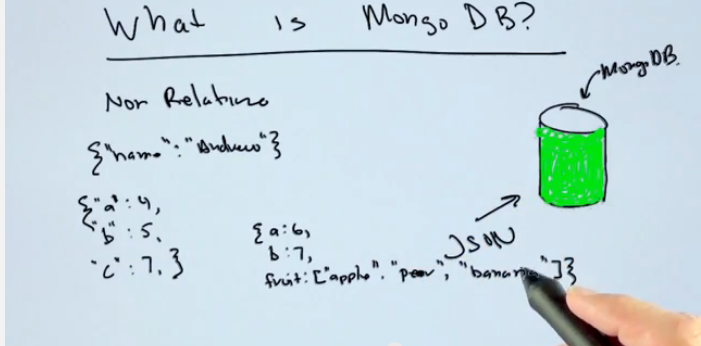 What is Mongo DB?
MongoDB.
Non Relational
{"name":"Andrew"}
{"a":4,
"b":5,
"c":7,}
{a:6,
b:7,
fruit:["apple","pear","banana"]}
JSON